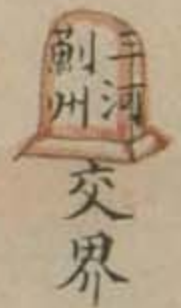 三河
薊州
交界